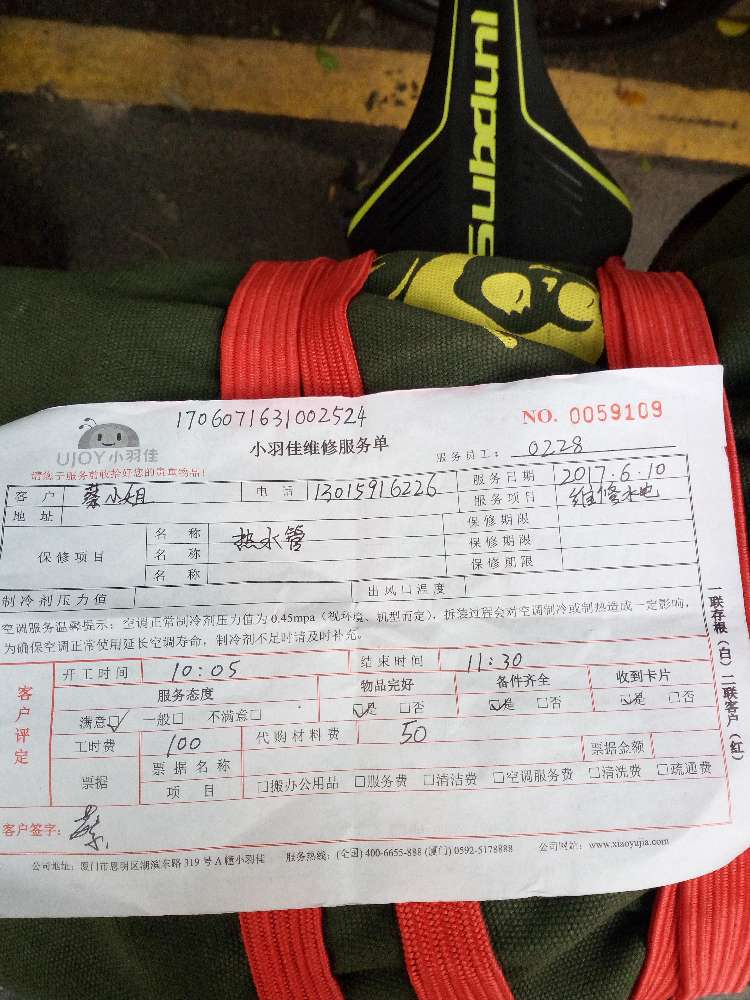 Subduni
1706071631002524
NO. 0059109
UJOY小羽佳
小羽佳维修服务单
服务员工： 0228
请您于服务前收拾好您的贵重物品！
客 户 蔡小姐 电 话 13015916226 服务日期 2017.6.10
地 址 服务项目 维修水电
保修项目 名 称 热水管 保修期限
名 称 保修期限
名 称 保修期限
制冷剂压力值 出风口温度
空调服务温馨提示：空调正常制冷剂压力值为0.45mpa（视环境、机型而定），拆装过程会对空调制冷或制热造成一定影响，
为确保空调正常使用延长空调寿命，制冷剂不足时请及时补充。
客户评定
开工时间 10:05 结束时间 11:30
服务态度 物品完好 备件齐全 收到卡片
满意☑ 一般□ 不满意□ ☑是 □否 ☑是 □否 ☑是 □否
工时费 100 代购材料费 50
票据 票据名称 票据金额
项 目 □搬办公用品 □服务费 □清洁费 □空调服务费 □清洗费 □疏通费
客户签字： 蔡
公司地址：厦门市思明区湖滨东路319号A幢小羽佳 服务热线：(全国)400-6655-888 (厦门) 0592-5178888 公司网站：www.xiaoyujia.com
一联存根（白）二联客户（红）